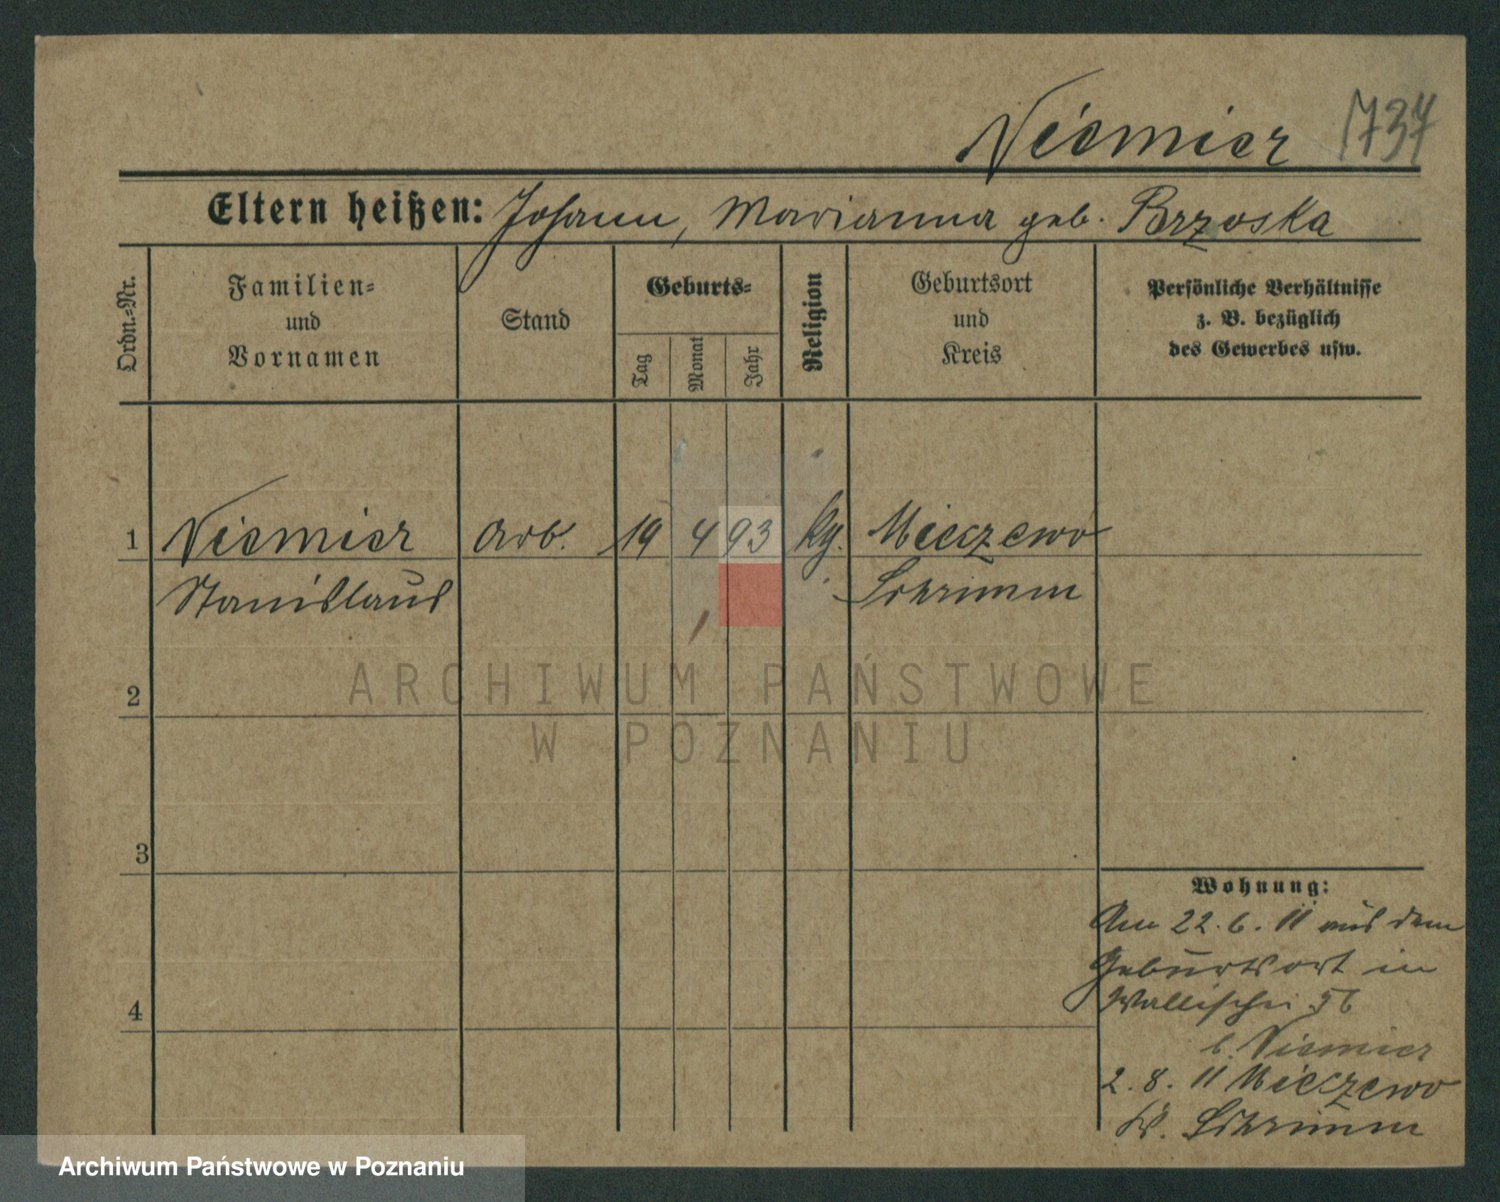 Niemier 1737
Eltern heißen: Johann, Marianna geb. Brzoska
Ordn.-Nr.
Familien-
und
Vornamen
Stand
Geburts-
Tag
Monat
Jahr
Religion
Geburtsort
und
Kreis
Persönliche Verhältnisse
z. B. bezüglich
des Gewerbes usw.
1 Niemier Arb. 19 4 93 kg. Mieczewo
Stanislaus Schrimm
2
3
4
Wohnung:
Am 22. 6. 11 aus dem
Geburtsort in
Wallischei 56
b. Niemier
2. 8. 11 Mieczewo
Kr. Schrimm
ARCHIWUM PAŃSTWOWE
W POZNANIU
Archiwum Państwowe w Poznaniu